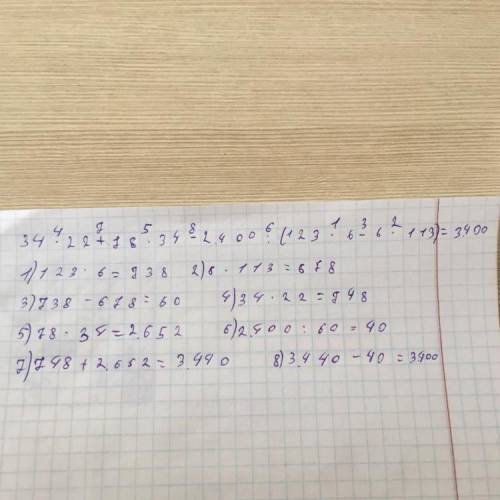 34 · 22 + 78 · 34 - 2.400 : (123 · 6 - 6 · 113) = 3.400
1) 123 · 6 = 738 2) 6 · 113 = 678
3) 738 - 678 = 60 4) 34 · 22 = 748
5) 78 · 34 = 2.652 6) 2.400 : 60 = 40
7) 748 + 2.652 = 3.440 8) 3.440 - 40 = 3400